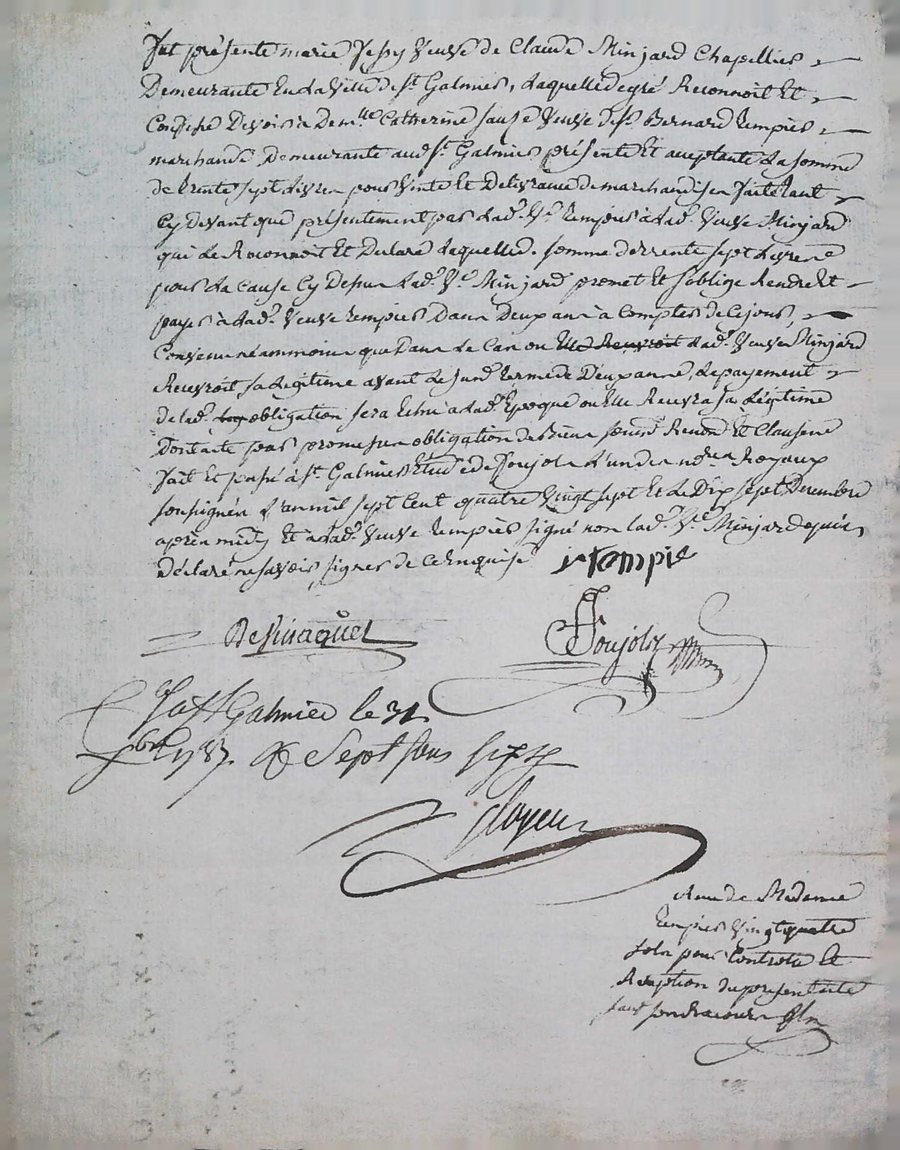 fut présente marie Veuve de Claude Minjard Chapellier
Demeurante En La Ville de St. Galmier, Laquelle de gré Reconnoit Et
Confesse Devoir a Demlle Catherine Veuve de Sr. Bernard tempier
marchande, Demeurante aud. St. Galmier présente Et acceptante La somme
de trente sept Livres pour Vente Et Delivrance de marchandises faite tant
Cy Devant que présentement par Lad. Ve. tempier à Lad. Veuve Minjard
qui Le Reconnoit Et Declare Laquelle somme de trente sept Livres
pour La Cause Cy Dessus Lad. Ve. Minjard promet Et soblige Rendre Et
payer à Lad. Veuve tempier Dans Deux ans à Compter de Ce jour,
Convenu néammoins que Dans Le Cas ou Lad. Veuve Minjard
Recevroit sa Légitime avant Le susd. terme de Deux ans, Le payement
de Lad. obligation sera Echu a Lad. Epoque ou Elle Recevra sa Légitime
Dont acte par promesses obligation de Biens soumis. Renon. Et Clauses
fait Et passé à St. Galmier Etude de Poujols L'un des nores. Royaux
soussignés L'an mil sept Cent quatre Vingt sept Et Le Dix sept Decembre
après midy Et a Lad. Veuve tempier signé non Lad. Ve. Minjard
Déclaré ne savoir signer de Ce Enquise tempie
Poujols
a St Galmier le 31
xbre 1787. R Sept sous six
Reçu de Madame
tempier Vingt quatre
sols pour Controle Et
Reception du présent acte
sans